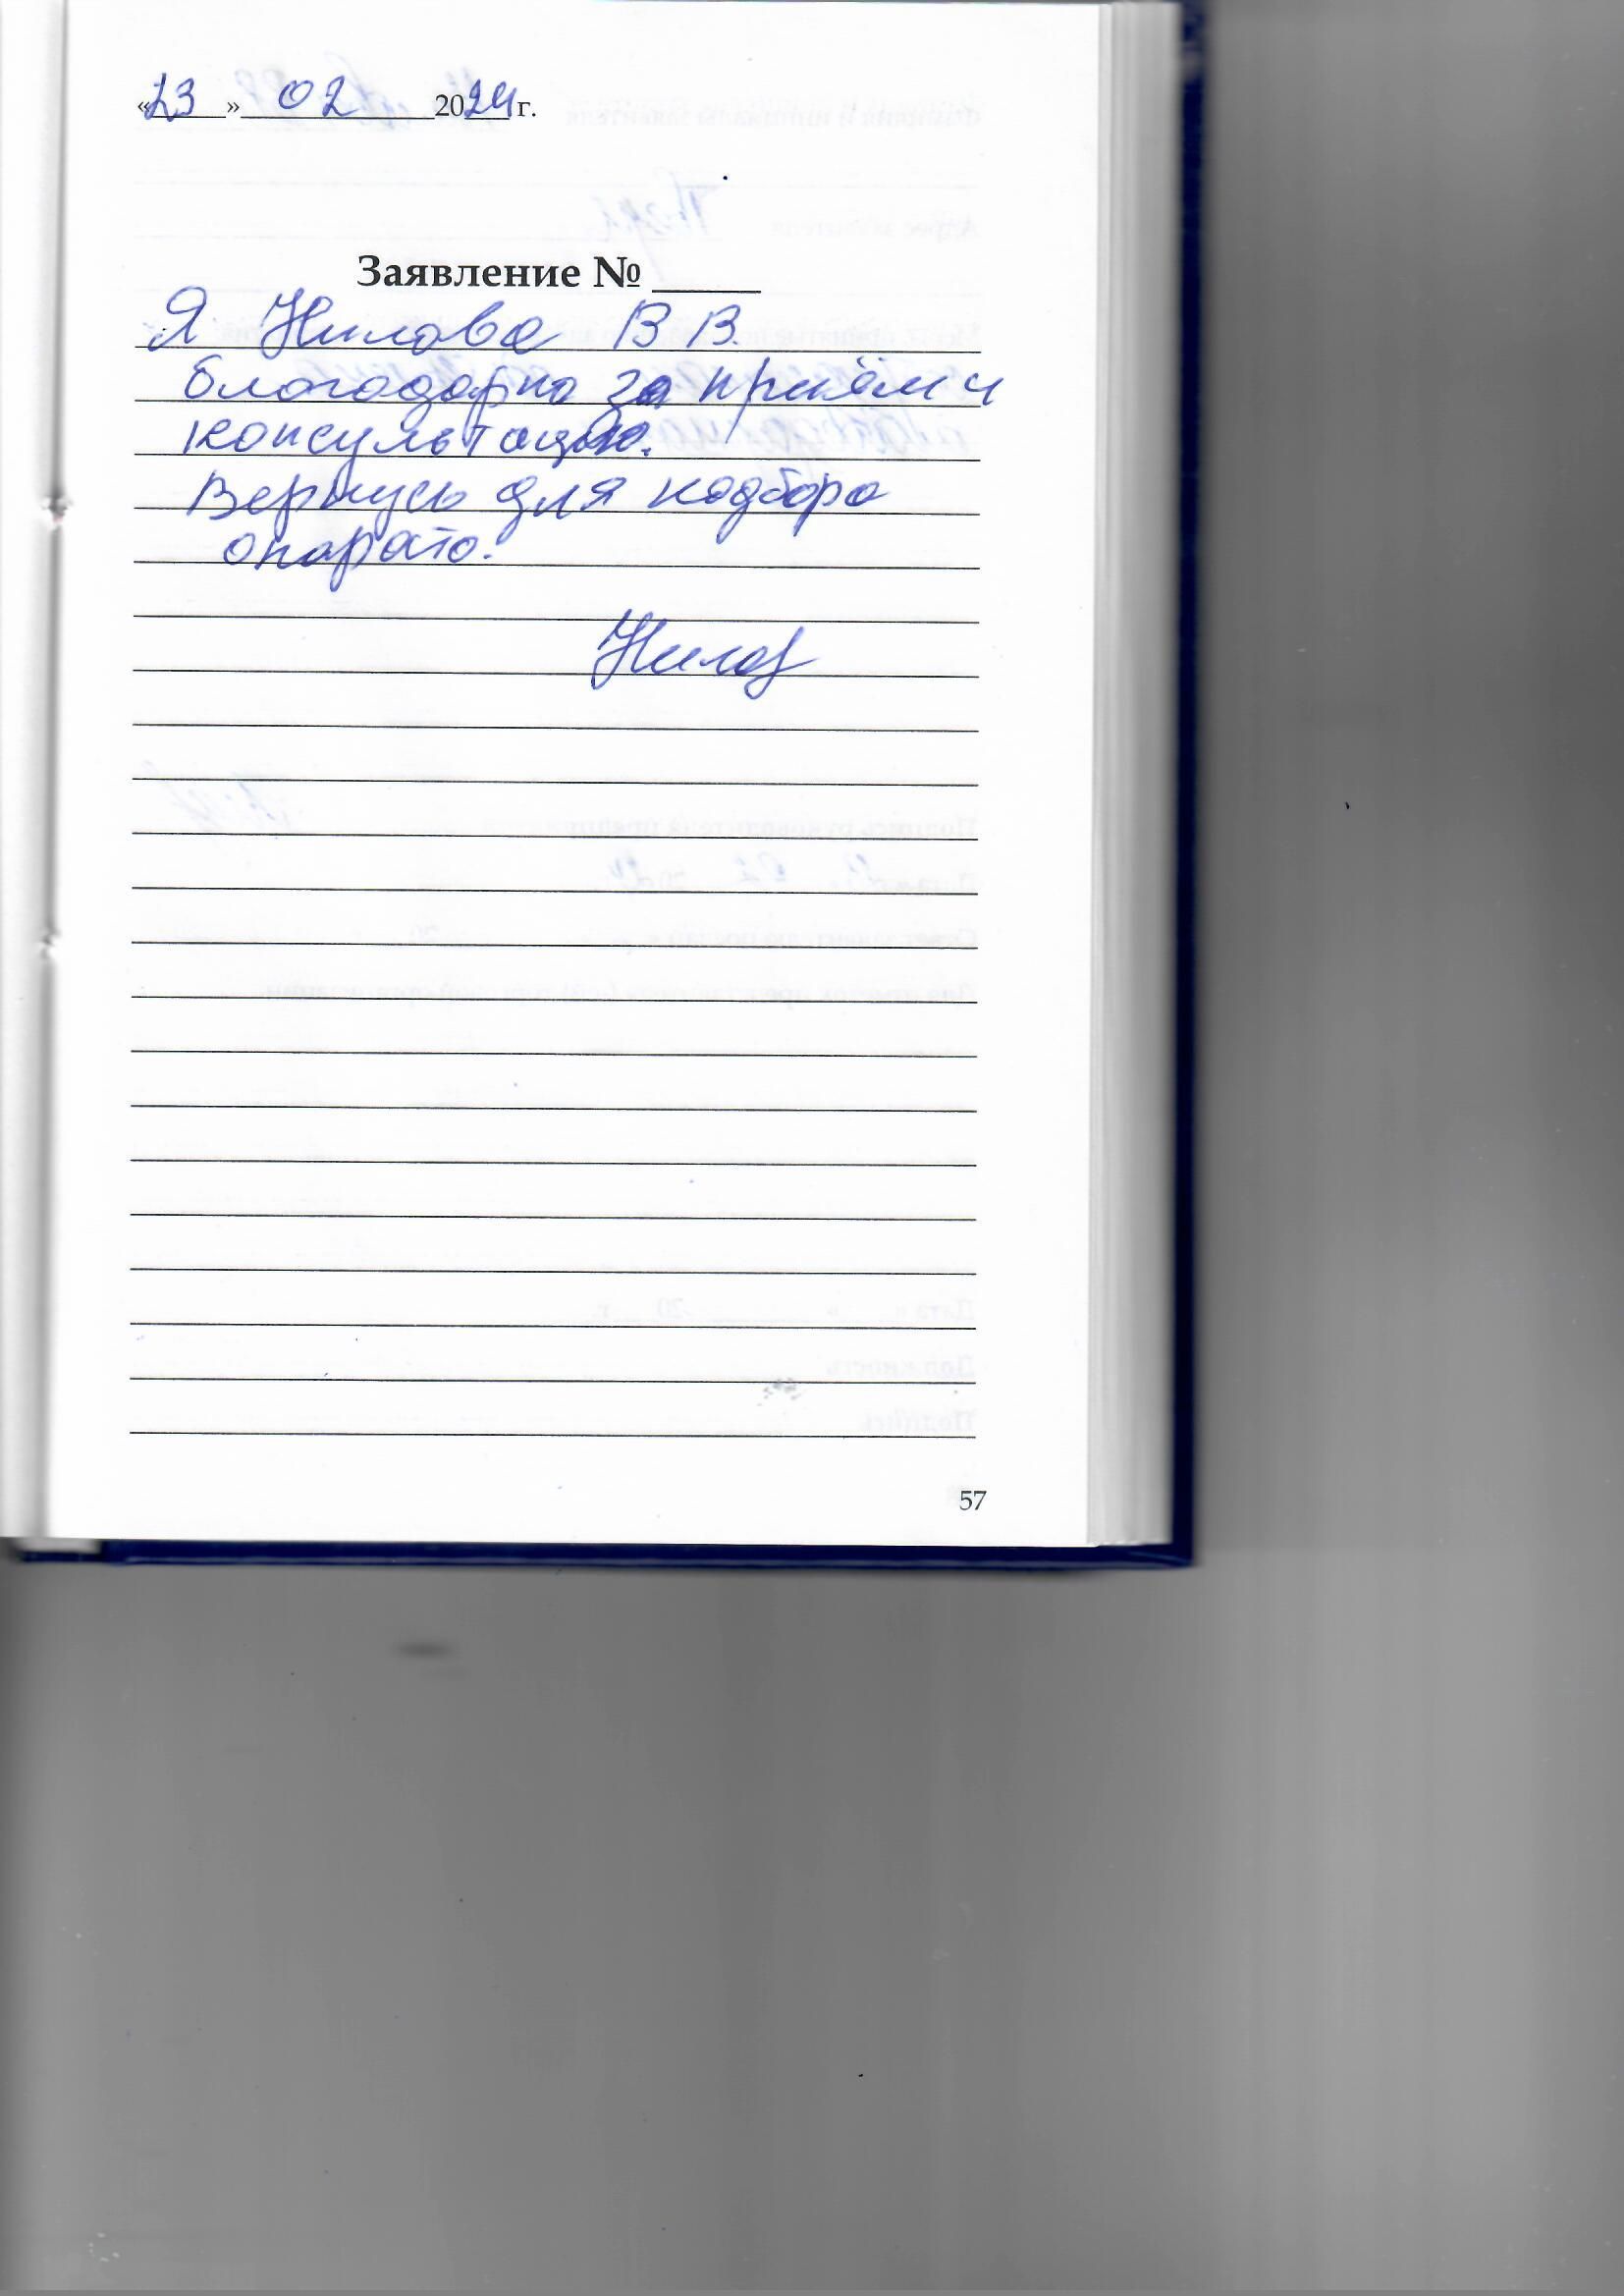 «23» 02 2024 г.
Заявление № _____
Я Нилова В В.
благодарна за приём и
консультацию.
Вернусь для подбора
апарата.
Нилов
57